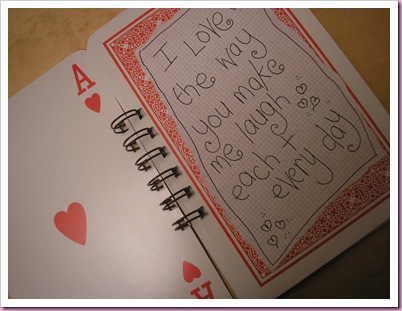 A
I Love
the way
you make
me laugh
each +
every day
A